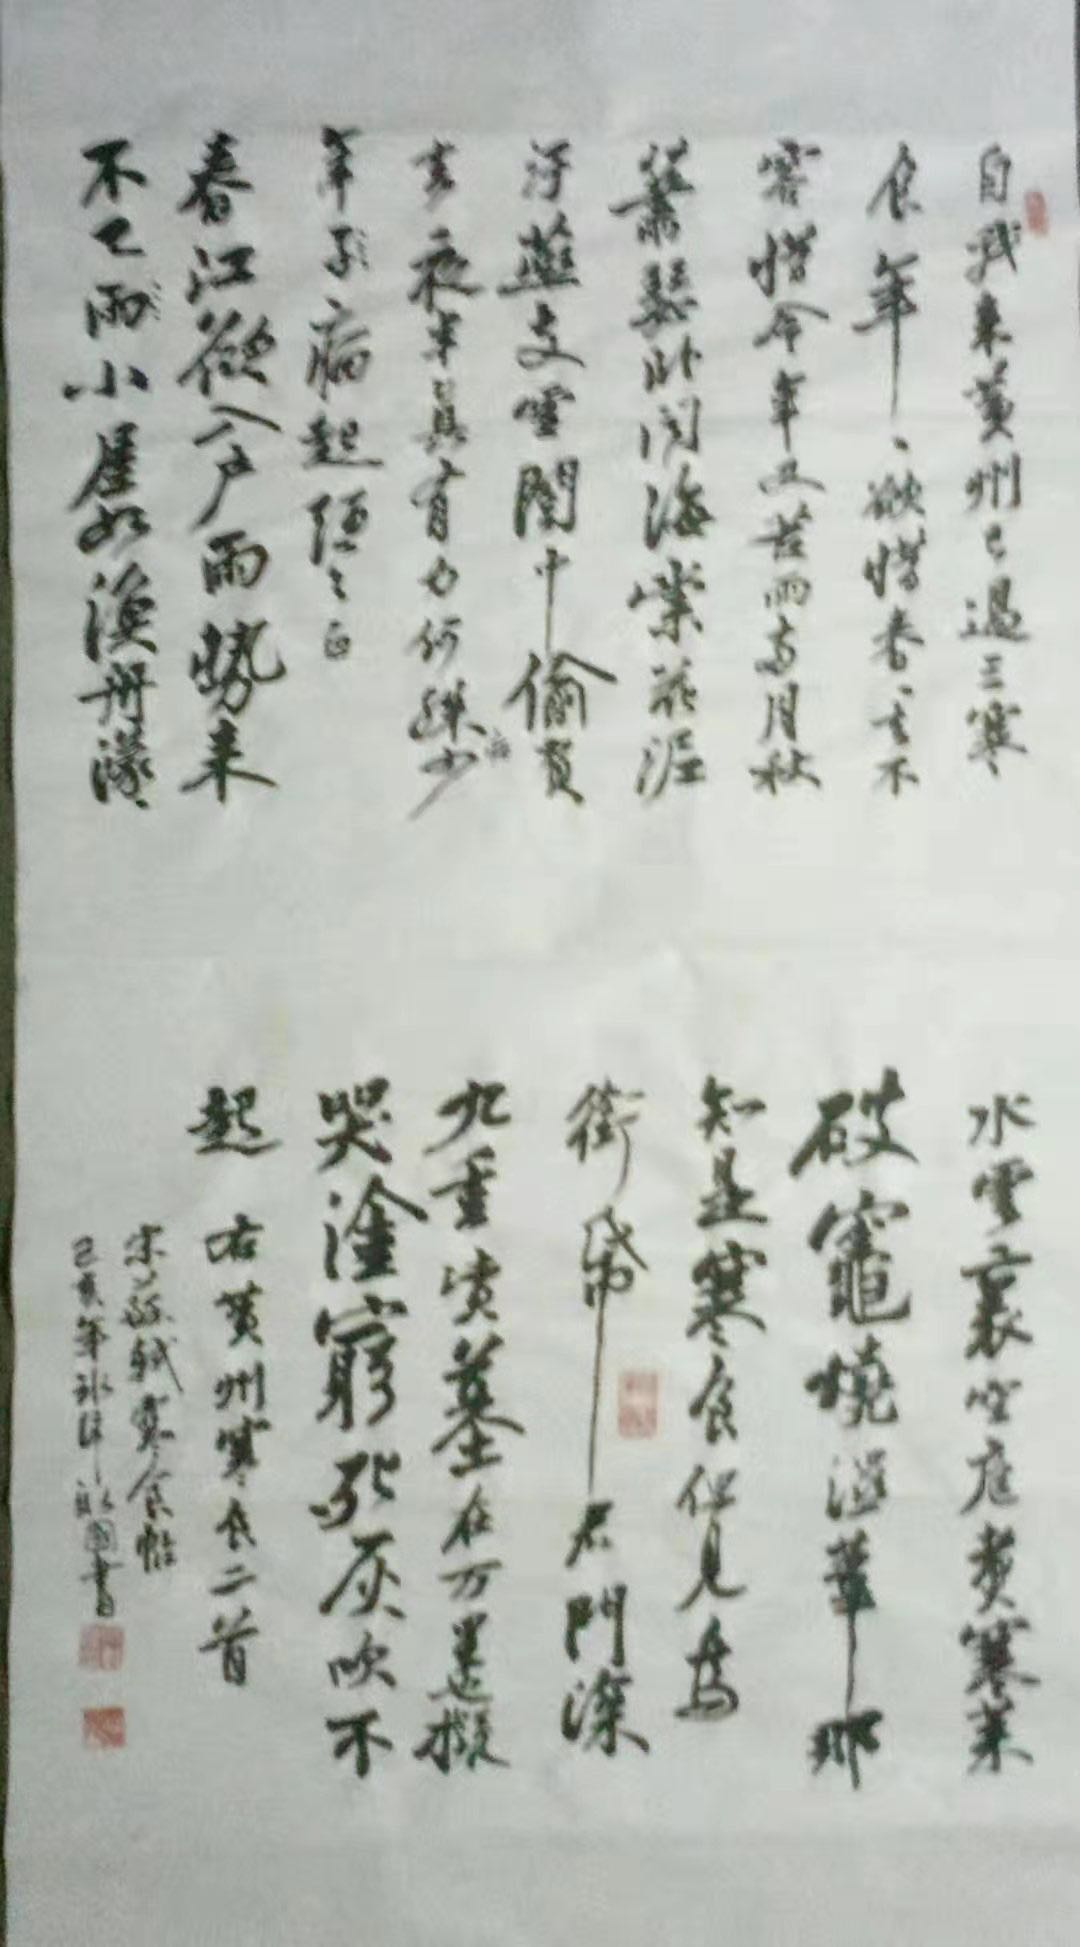 自我来黄州已過三寒
食年〻欲惜春〻去不
容惜今年又苦雨两月秋
蕭瑟卧聞海棠花泥
汙燕支雪闇中偷負
去夜半真有力何殊少
年子病起頭已白
春江欲入户雨勢来
不已雨小屋如漁舟濛〻
水雲裏空庖煮寒菜
破竈燒濕葦那
知是寒食但見烏
銜帋君門深
九重墳墓在万里也擬
哭塗窮死灰吹不
起 右黄州寒食二首
宋蘇軾寒食帖
己亥年 書